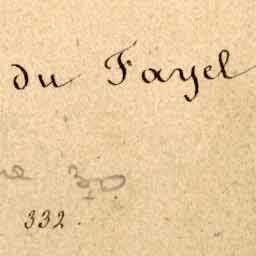 du Fayel
332.